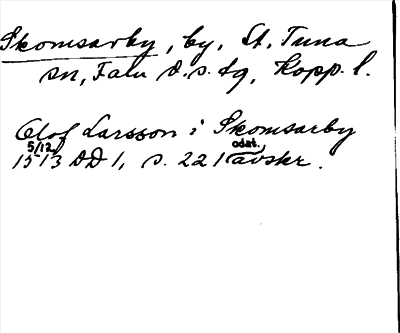 Skomsarby, by, St. Tuna
sn, Falu d.s. tg, Kopp. l.
Olof Larsson i Skomsarby
5/12 odat.
1513 DD 1, s. 221 avskr.